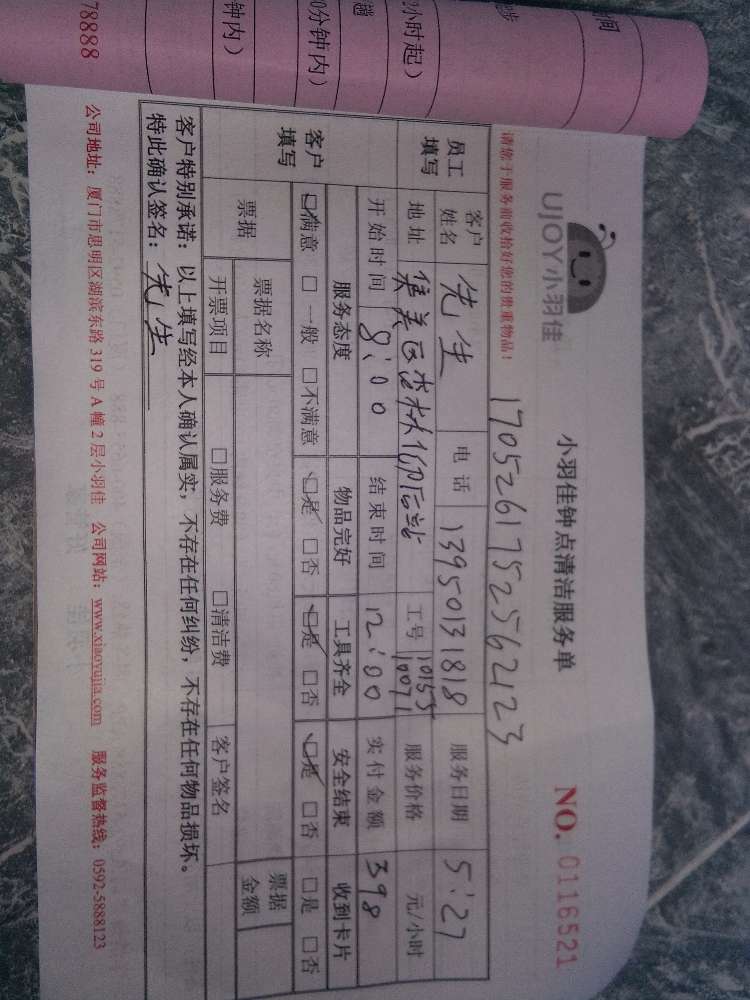 间
涉
2小时起）
0分钟内）
趟
钟内）
78888
UJOY小羽佳
小羽佳钟点清洁服务单
NO. 0116521
请您于服务前收拾好您的贵重物品！
1705261752562123
员工填写
客户姓名 先生 电话 13950131818 服务日期 5:27
地址 集美区杏林 工号 10155 10071 服务价格 元/小时
开始时间 8:00 结束时间 12:00 实付金额 398
客户填写
服务态度 物品完好 工具齐全 安全结束 收到卡片
☑满意 □一般 □不满意 ☑是 □否 ☑是 □否 ☑是 □否 □是 □否
票据 票据名称 票据金额
开票项目 □服务费 □清洁费 客户签名
客户特别承诺：以上填写经本人确认属实，不存在任何纠纷，不存在任何物品损坏。
特此确认签名：先生
公司地址：厦门市思明区湖滨东路 319 号 A 幢 2 层小羽佳 公司网站：www.xiaoyujia.com 服务监督热线：0592-5888123